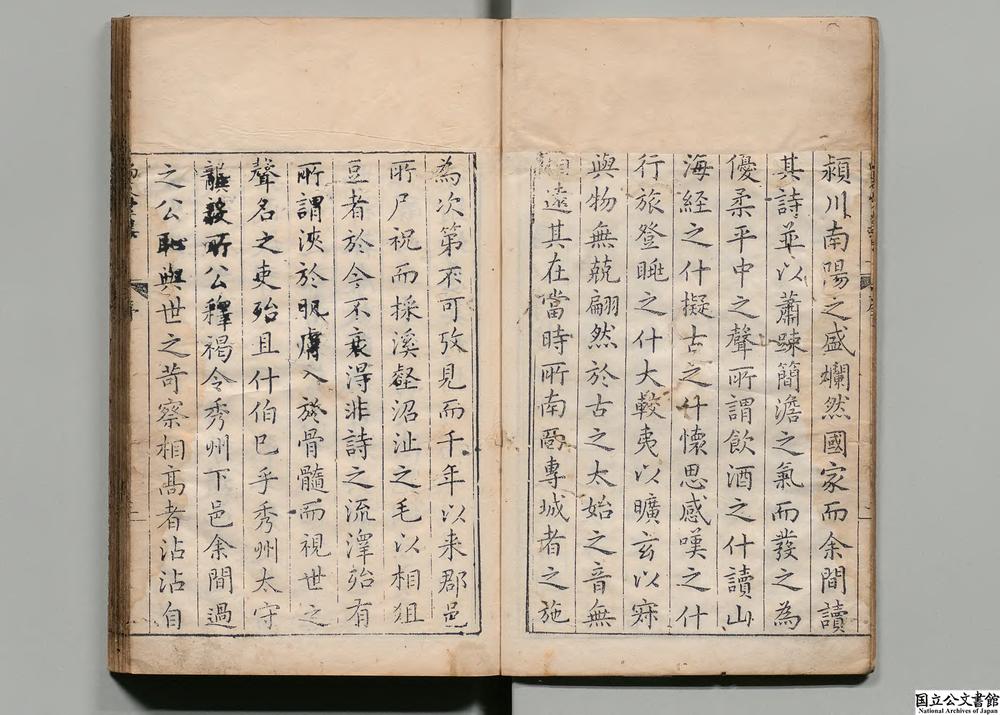 潁川南陽之盛爛然國家而余間讀
其詩並以蕭疎簡澹之氣而發之為
優柔平中之聲所謂飲酒之什讀山
海經之什擬古之什懷思感嘆之什
行旅登眺之什大較夷以曠玄以寂
與物無競翩然於古之太始之音無
遠其在當時所南面專城者之施
為次第不可攷見而千年以来郡邑
所尸祝而採溪壑沼沚之毛以相狙
豆者於今不衰淂非詩之流澤殆有
所謂浹於肌膚入於骨髓而視世之
聲名之吏殆且什伯已乎秀州太守
龔毅所公釋褐令秀州下邑余間過
之公恥與世之苛察相髙者沾沾自
国立公文書館
National Archives of Japan